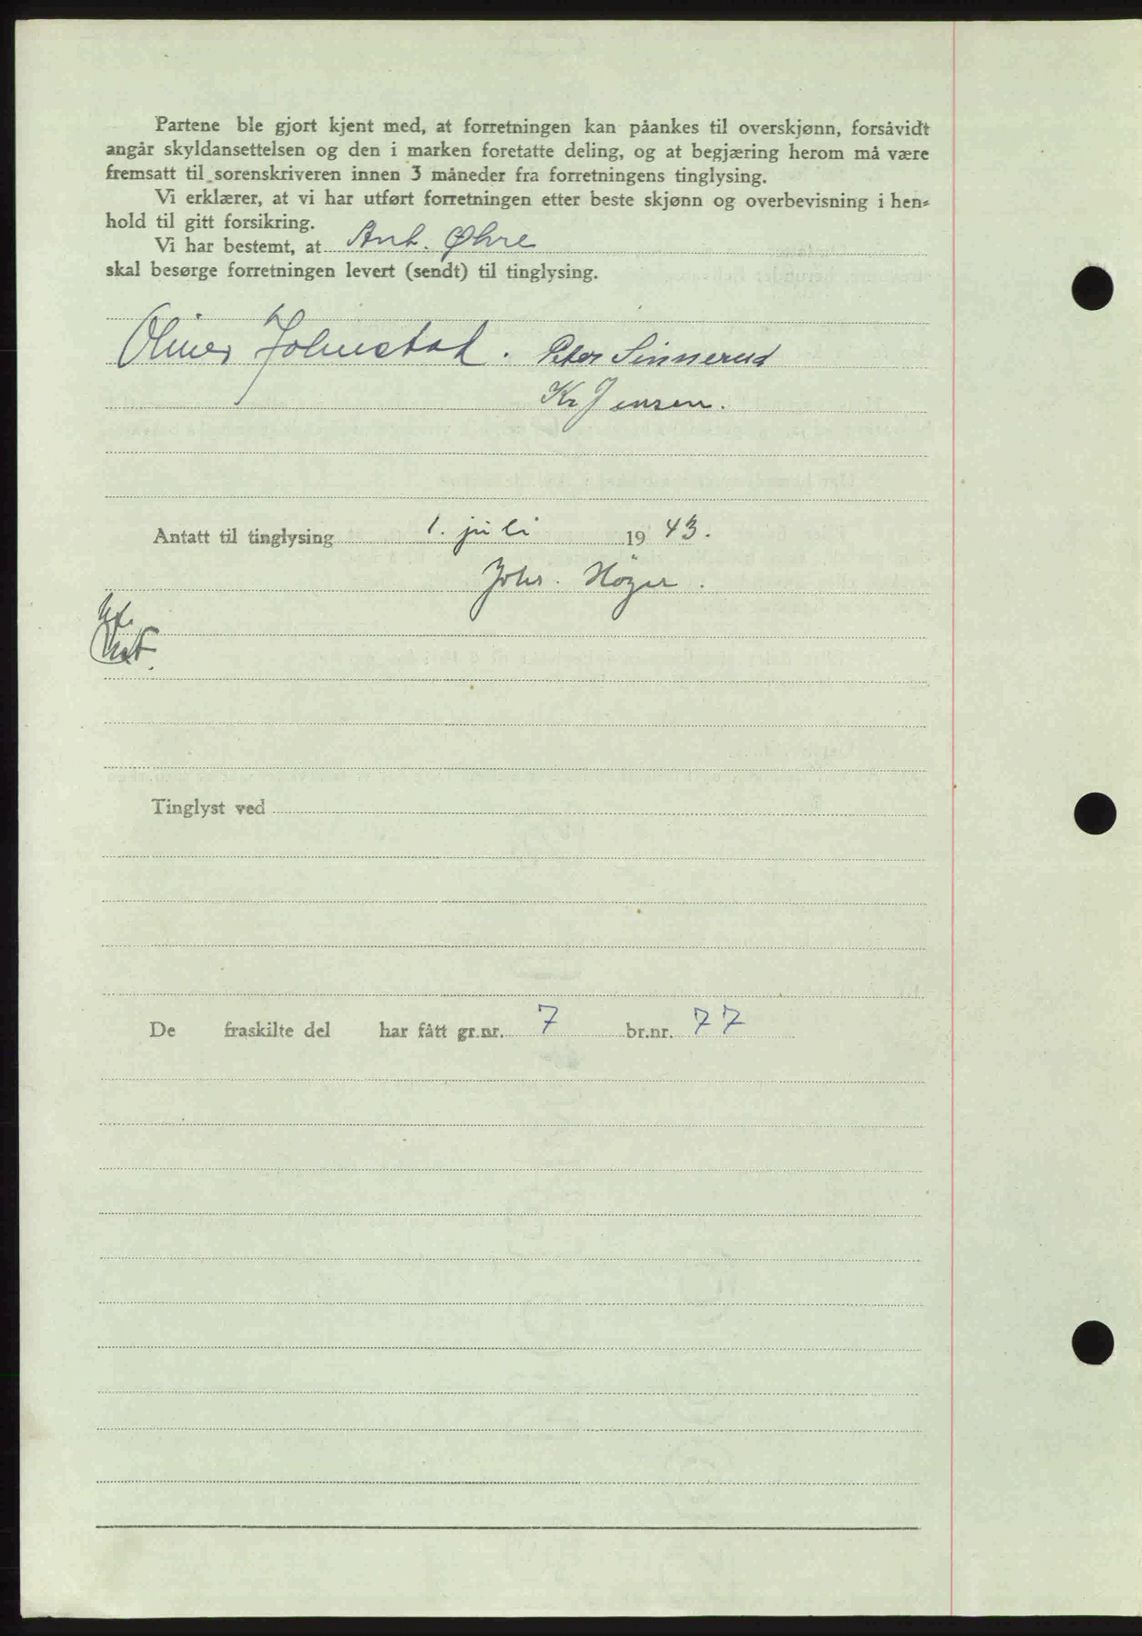 Partene ble gjort kjent med, at forretningen kan påankes til overskjønn, forsåvidt
angår skyldansettelsen og den i marken foretatte deling, og at begjæring herom må være
fremsatt til sorenskriveren innen 3 måneder fra forretningens tinglysing.
Vi erklærer, at vi har utført forretningen etter beste skjønn og overbevisning i hen-
hold til gitt forsikring.
Vi har bestemt, at Ant. Øhre
skal besørge forretningen levert (sendt) til tinglysing.
Oliver Johnstad. Peter Sinnerud
Kr Jensen.
Antatt til tinglysing 1. juli 1943.
Johs. Høyer.
Tinglyst ved
De fraskilte del har fått gr.nr. 7 br.nr. 77